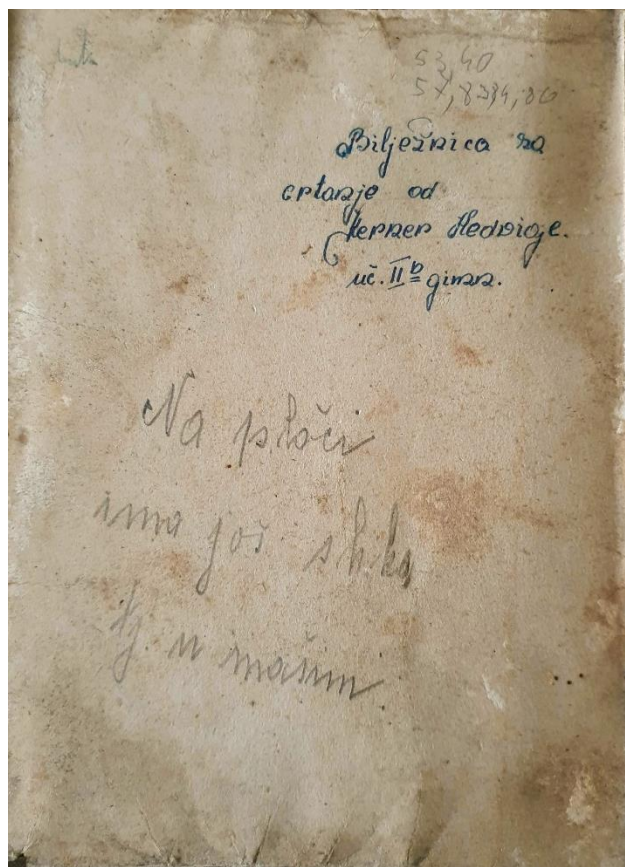 53,40
Bilježnica za
crtanje od
Herner Hedvige.
uč. II b gimn.
Na ploči
ima još slika
tj. u mašini